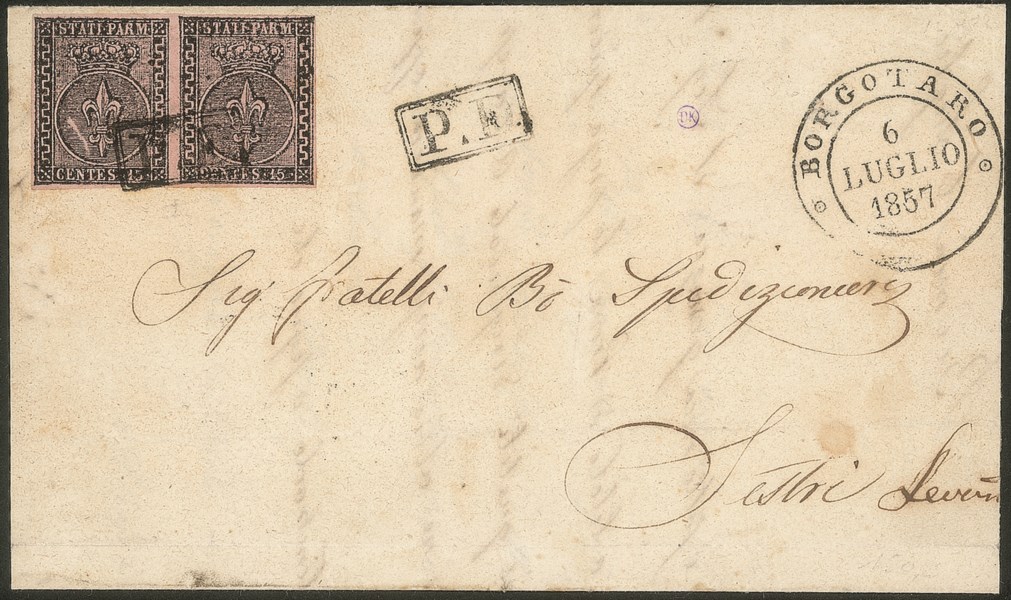 STATI PARM STATI PARM
CENTES. 15 CENTES. 15
P.D.
DK
BORGOTARO
6
LUGLIO
1857
Sig. fratelli Bò Spedizionieri
Sestri Levan